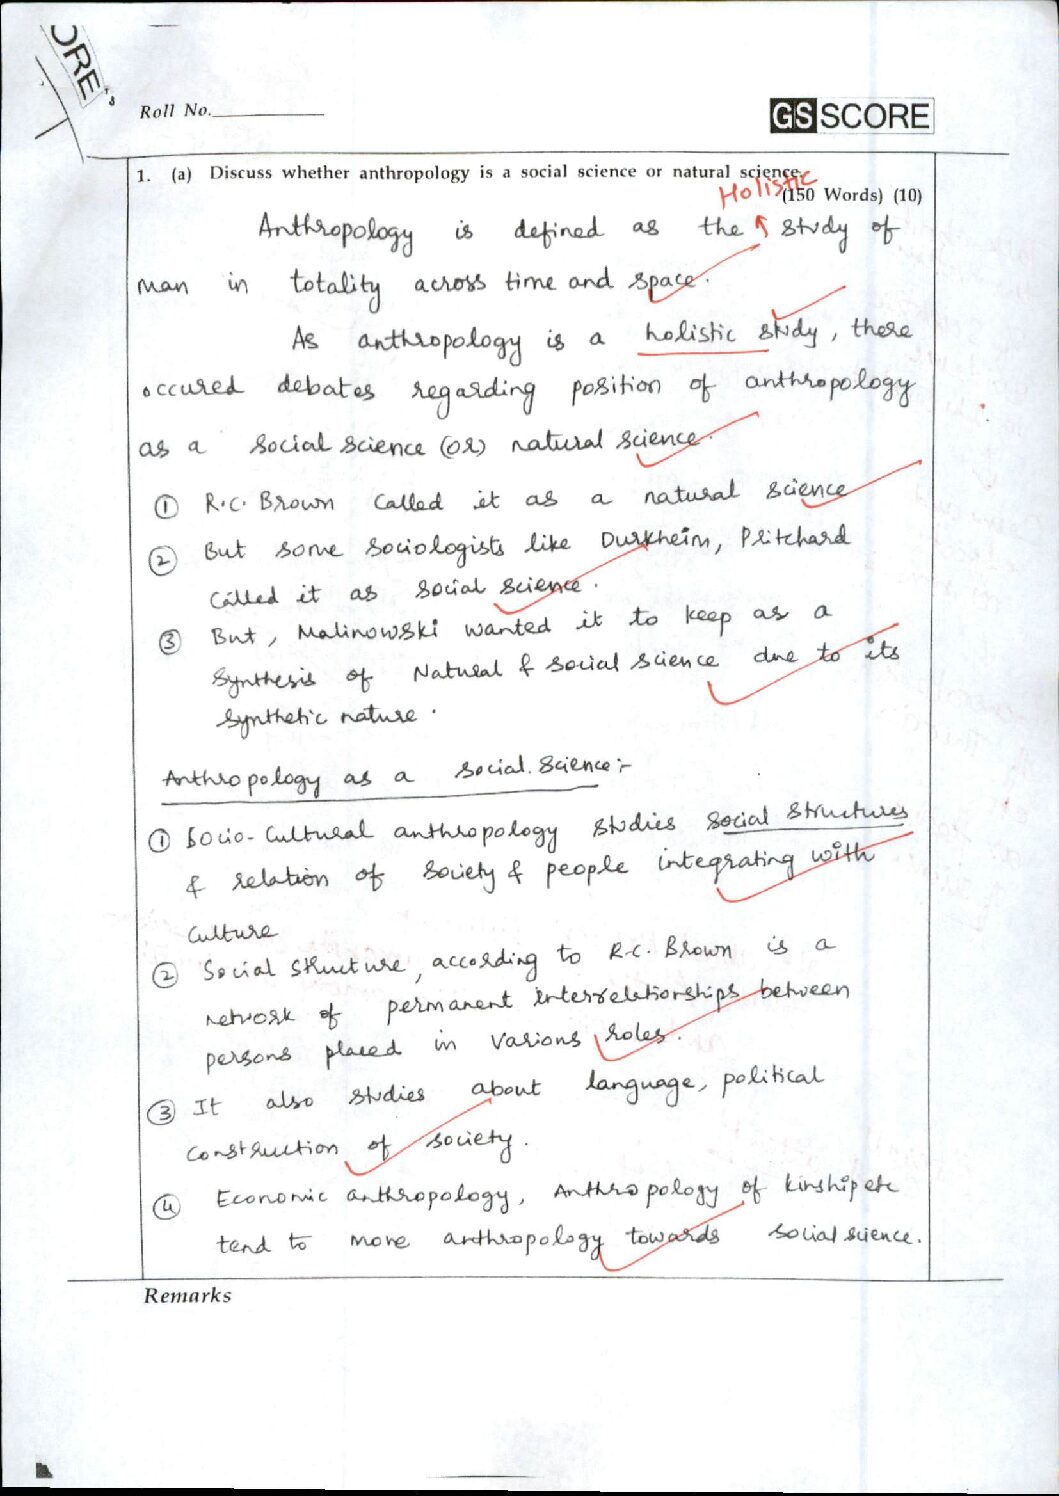 ORE
Roll No.
GSSCORE
1. (a) Discuss whether anthropology is a social science or natural science.
(150 Words) (10)
Holistic
Anthropology is defined as the study of
man in totality across time and space.
As anthropology is a holistic study, there
occured debates regarding position of anthropology
as a social science (or) natural science.
① R.C. Brown called it as a natural science
② But some sociologists like Durkheim, Pritchard
called it as social science.
③ But, Malinowski wanted it to keep as a
synthesis of Natural & social science due to its
synthetic nature.
Anthropology as a social science:-
① Socio-cultural anthropology studies social structures
& relation of society & people integrating with
culture
② Social structure, according to R.C. Brown is a
network of permanent interrelationships between
persons placed in various roles.
③ It also studies about language, political
construction of society.
④ Economic anthropology, Anthropology of kinship etc
tend to move anthropology towards social science.
Remarks